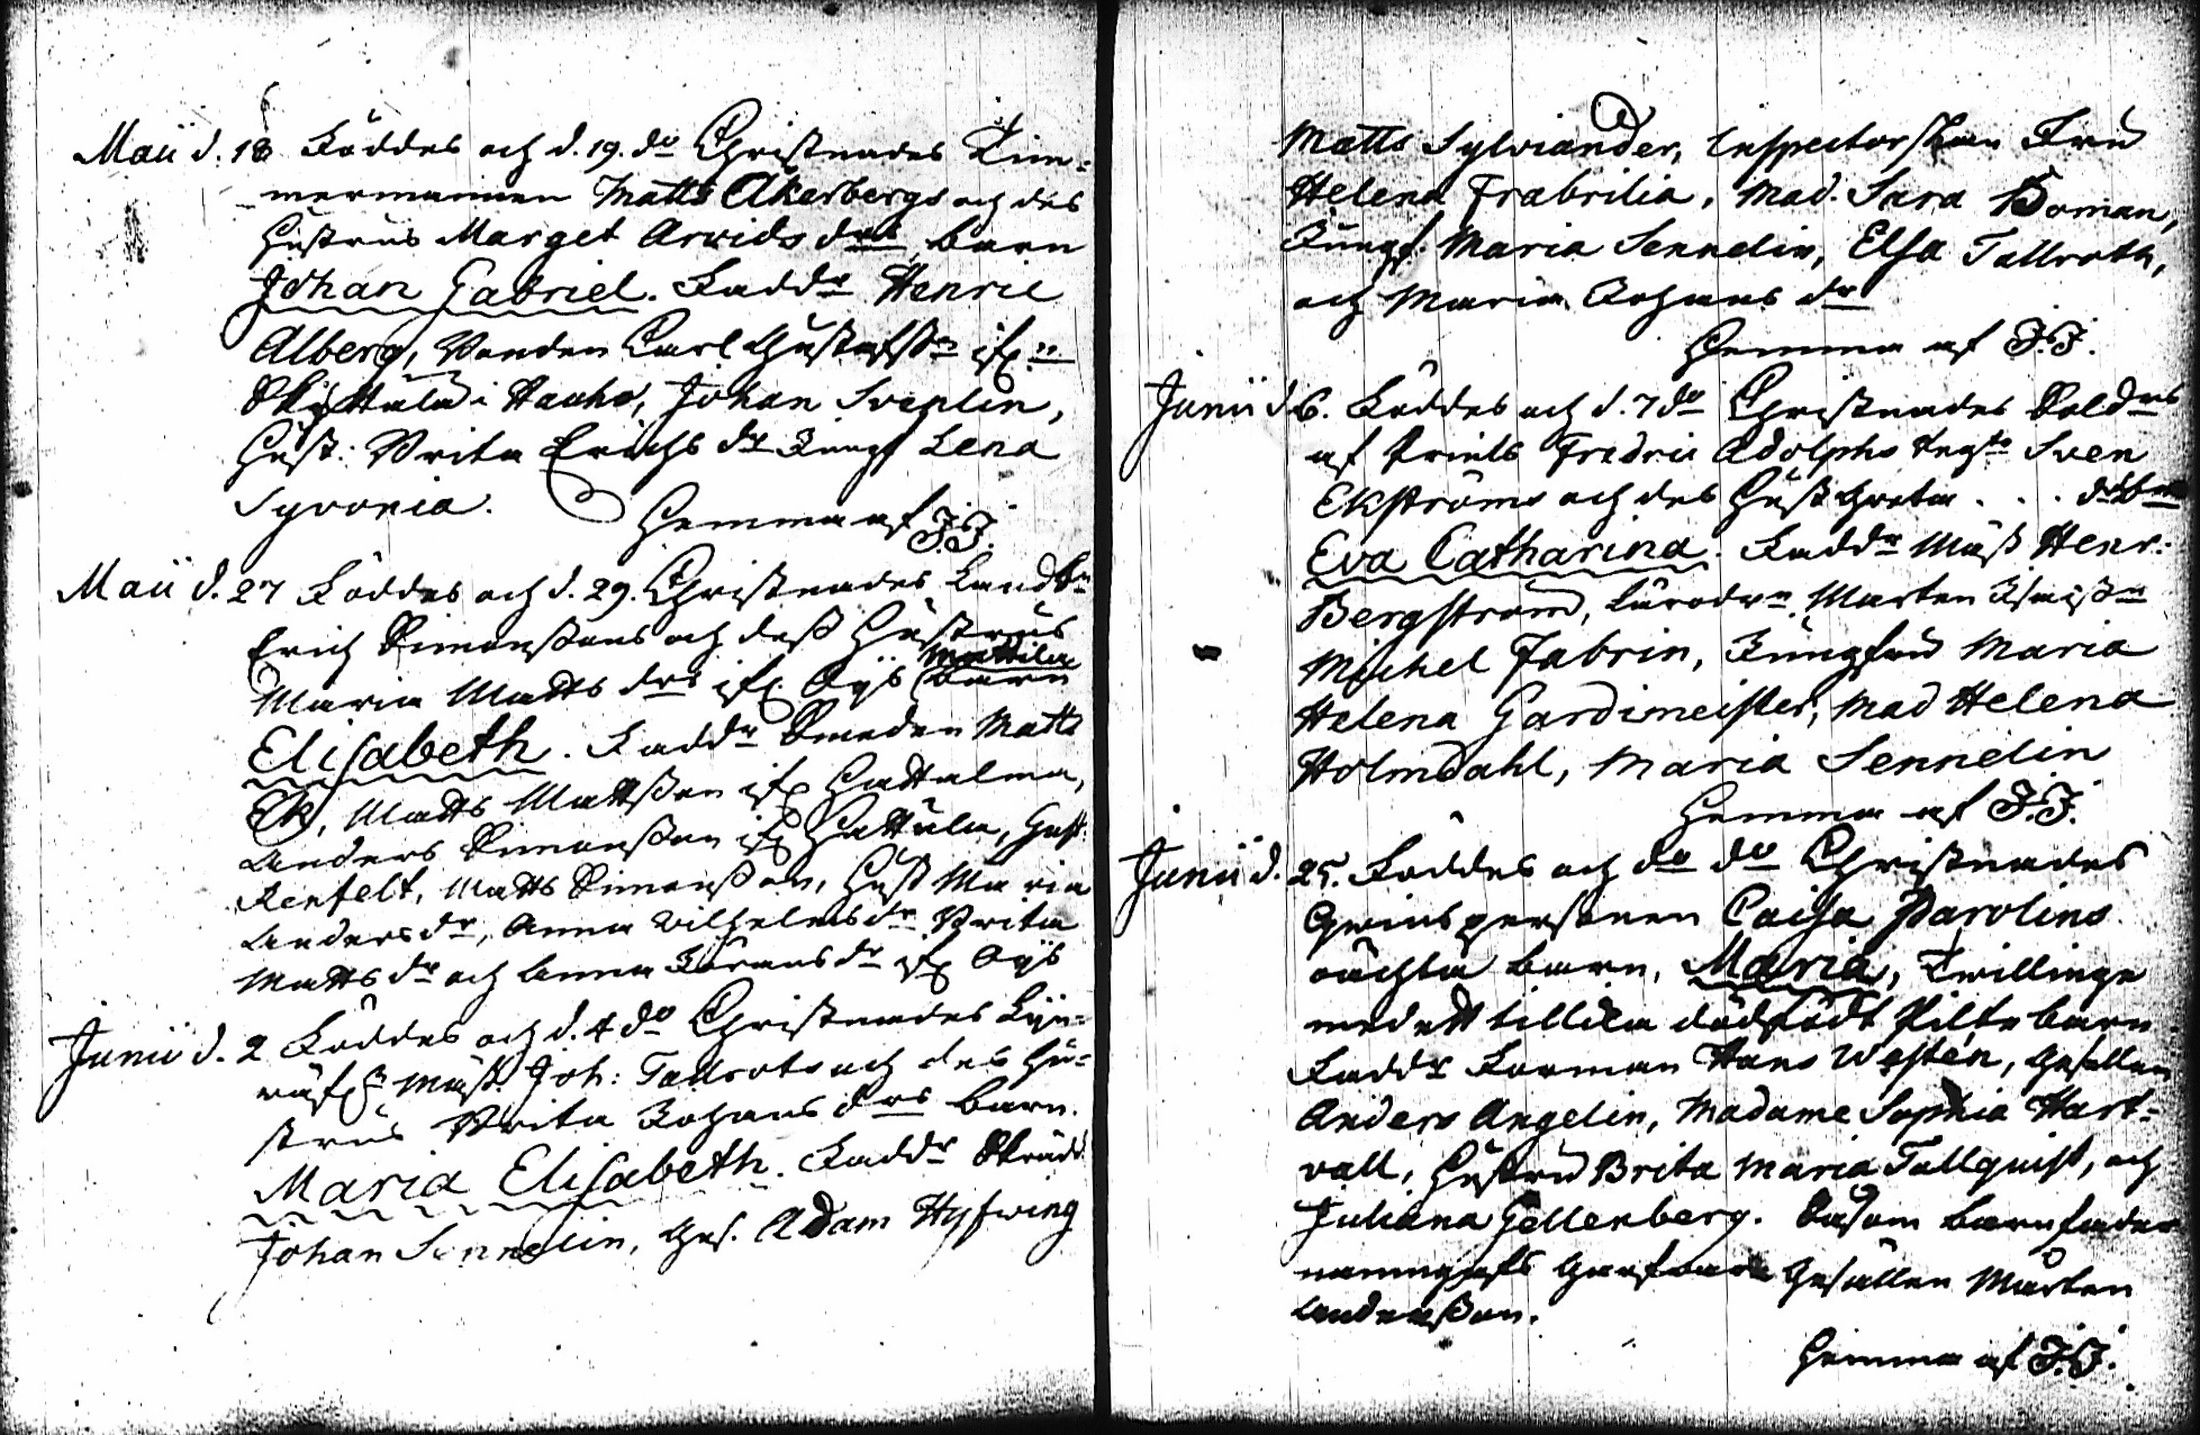 Maii d. 18 Föddes och d. 19. do Christnades Tim-
mermannen Matts Åkerbergs och des
Hustrus Marget Arvids drs barn
Johan Gabriel. Faddr Henric
Alberg, Bonden Carl Gustafsn ifrn
i Hauho, Johan Sveplin,
Hust: Brita Erichs dr Jungf Lena
Syvonia. Hemma af J.J.
Maii d. 27 Föddes och d. 29. Christnades Landb
Erich Simonssons och dess Hustrus
Mattila
Maria Matts drs ifr. Öÿs barn
Elisabeth. Faddr Smeden Matts
Ek, Matts Mattsson ifr Hattelma,
Anders Simonsson ifr Hattula, Gust.
Renfelt, Matts Simonsson, Hust Maria
Anders dr, Anna Wilhelms dr Brita
Matts dr och Anna Görans dr ifr Öÿs
Junii d. 2 Föddes och d. 4 do Christnades
Mäst. Joh: Tallrots och des Hu-
strus Brita Johans drs barn.
Maria Elisabeth. Faddr Skrädd.
Johan Sennelin, Ges. Adam Hyfwing
Matts Sylviander, Inspectorskan Fru
Helena Frabrilia, Mad. Sara Boman,
Jungf. Maria Sennelin, Elsa Tallroth,
och Maria Johans dr
Hemma af J.J.
Junii d. 6. Föddes och d. 7 do Christnades Sold
af Prints Fredric Adolphs Regte Sven
Ekströms och des Hust Greta . . . drs bn
Eva Catharina. Faddr Mäst Henr:
Bergström, Marten
Michel Fabrin, Jungfru Maria
Helena Gardimeister, Mad Helena
Holmdahl, Maria Sennelin
Hemma af J.J.
Junii d. 25. Föddes och do do Christnades
Qwinspersonen Caisa Parolins
oächta barn, Maria, Twillinge
med ett tillika dödfödt Piltebarn.
Faddr Forman Hans Westén, Gesellen
Anders Angelin, Madame Sophia Hart-
vall, Hustru Brita Maria Tallquist, och
Juliana Gellenberg. Såsom barnfader
namngafs Gesällen Mårten
Andersson.
Hemma af J.J.